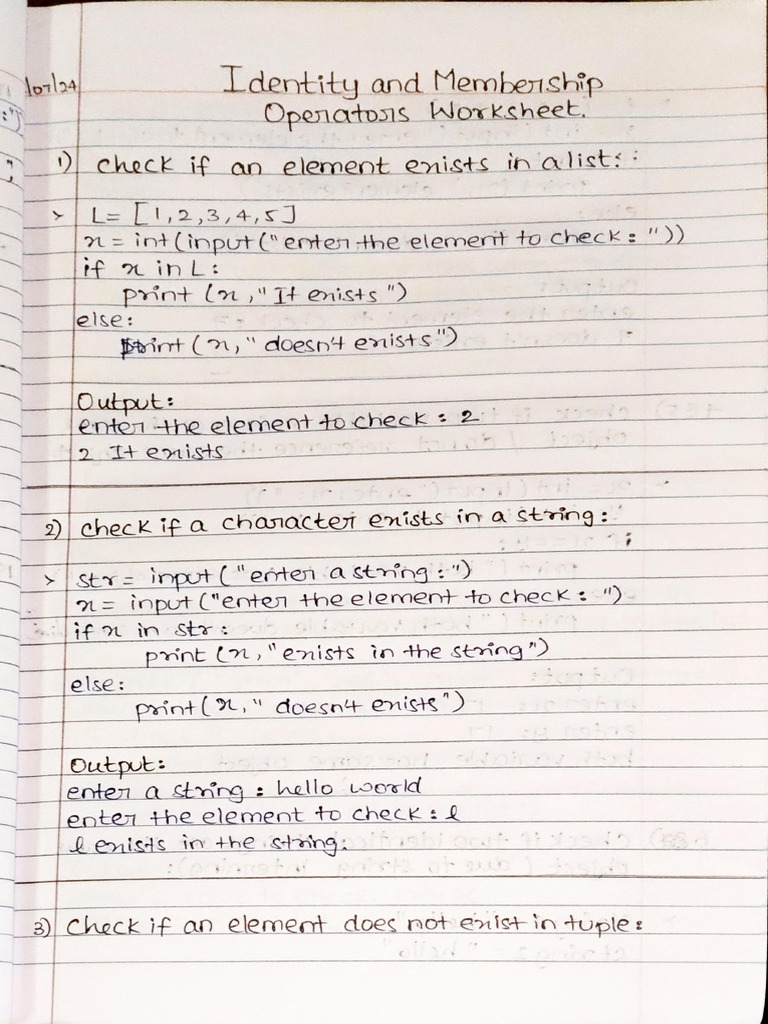 /07/24
Identity and Membership
Operators Worksheet.
1) check if an element exists in a list:
> L= [1,2,3,4,5]
x = int(input("enter the element to check: "))
if x in L:
print (x,"It exists")
else:
print (x," doesn't exists")
Output:
enter the element to check : 2
2 It exists
2) check if a character exists in a string:
> str= input ("enter a string:")
x= input ("enter the element to check : ")
if x in str:
print (x,"exists in the string")
else:
print (x," doesn't exists")
Output:
enter a string : hello world
enter the element to check : l
l exists in the string.
3) Check if an element does not exist in tuple: